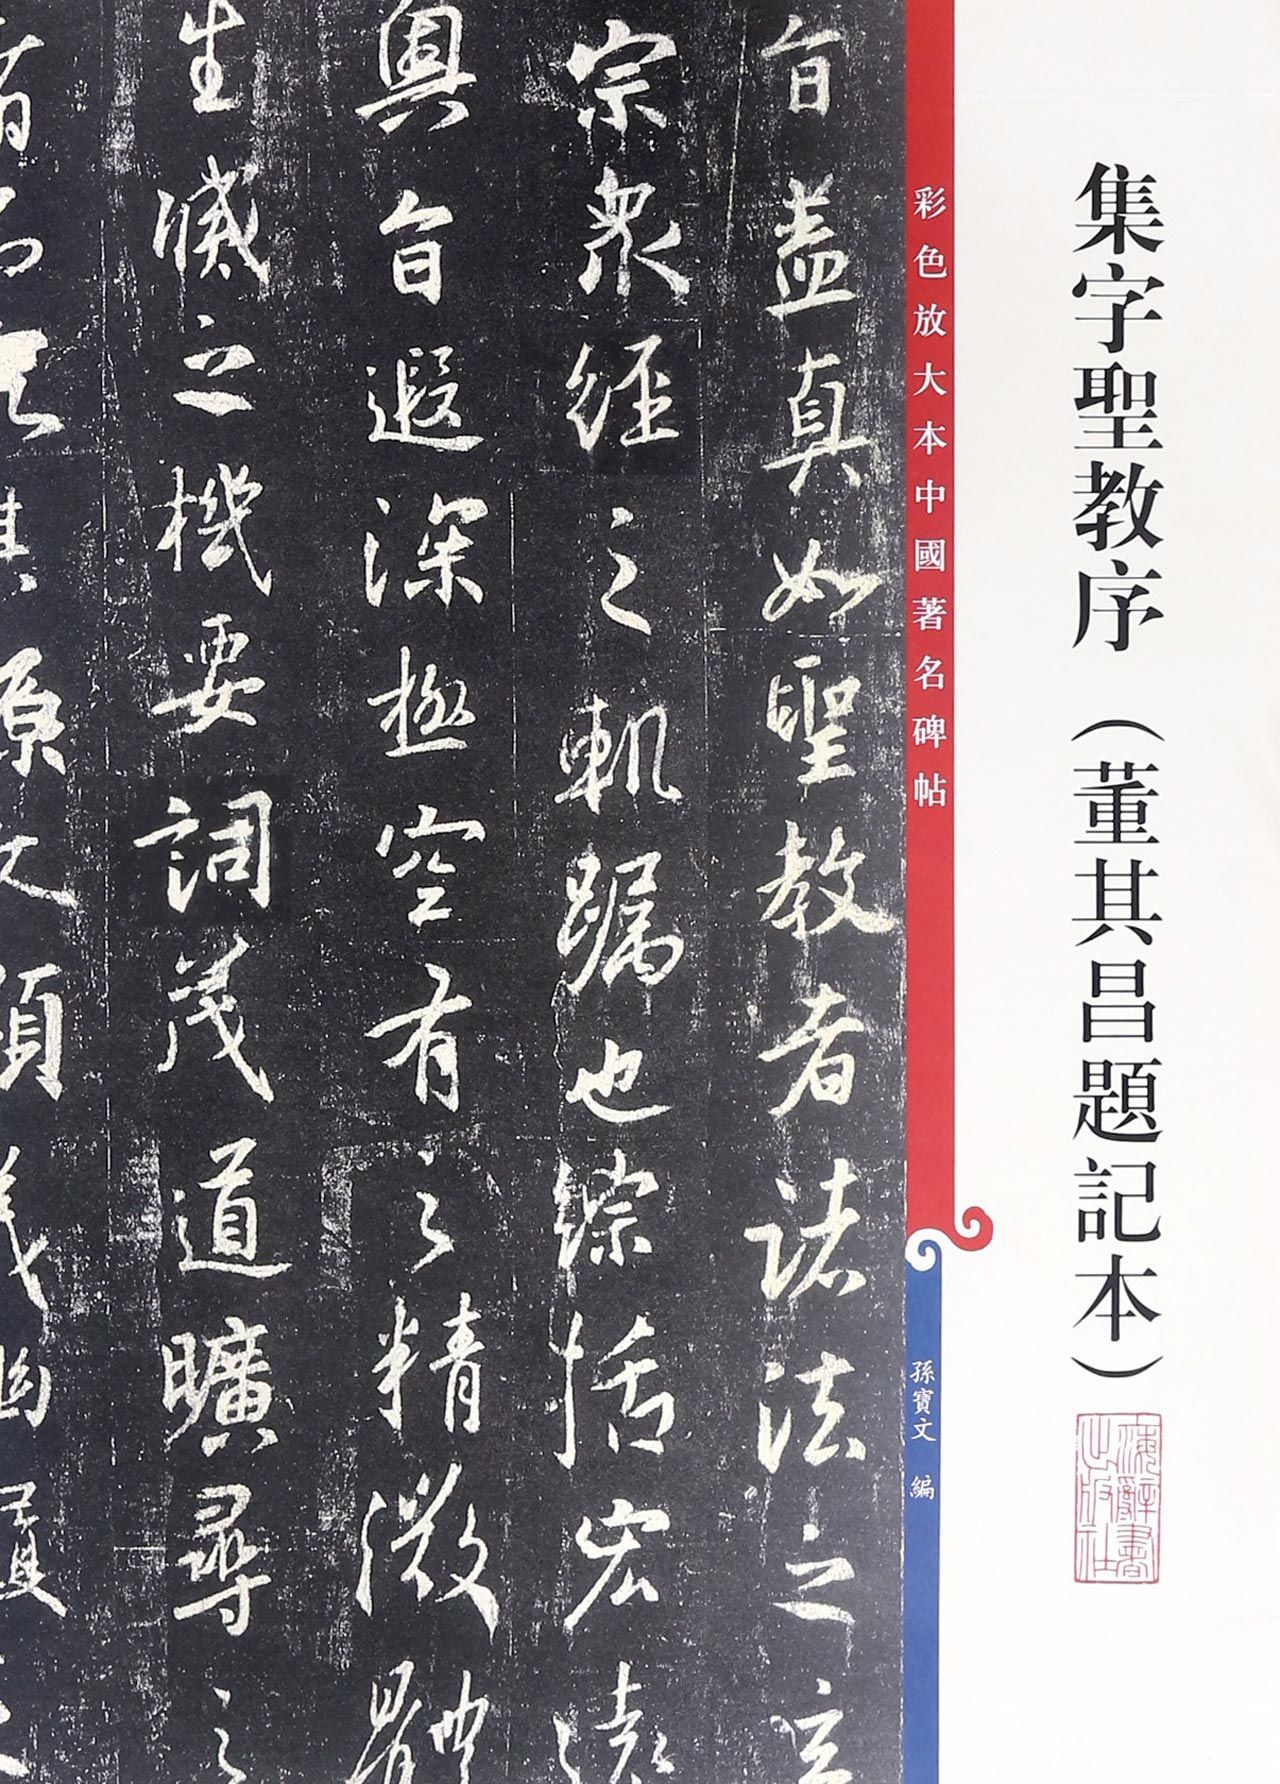 集字聖教序（董其昌題記本）
上海辭書出版社
彩色放大本中國著名碑帖
孫寶文 編
旨盖真如聖教者諸法之玄
宗衆經之軌躅也綜括宏遠
奧旨遐深極空有之精微體
生滅之機要詞茂道曠尋之
其源文顯義幽履